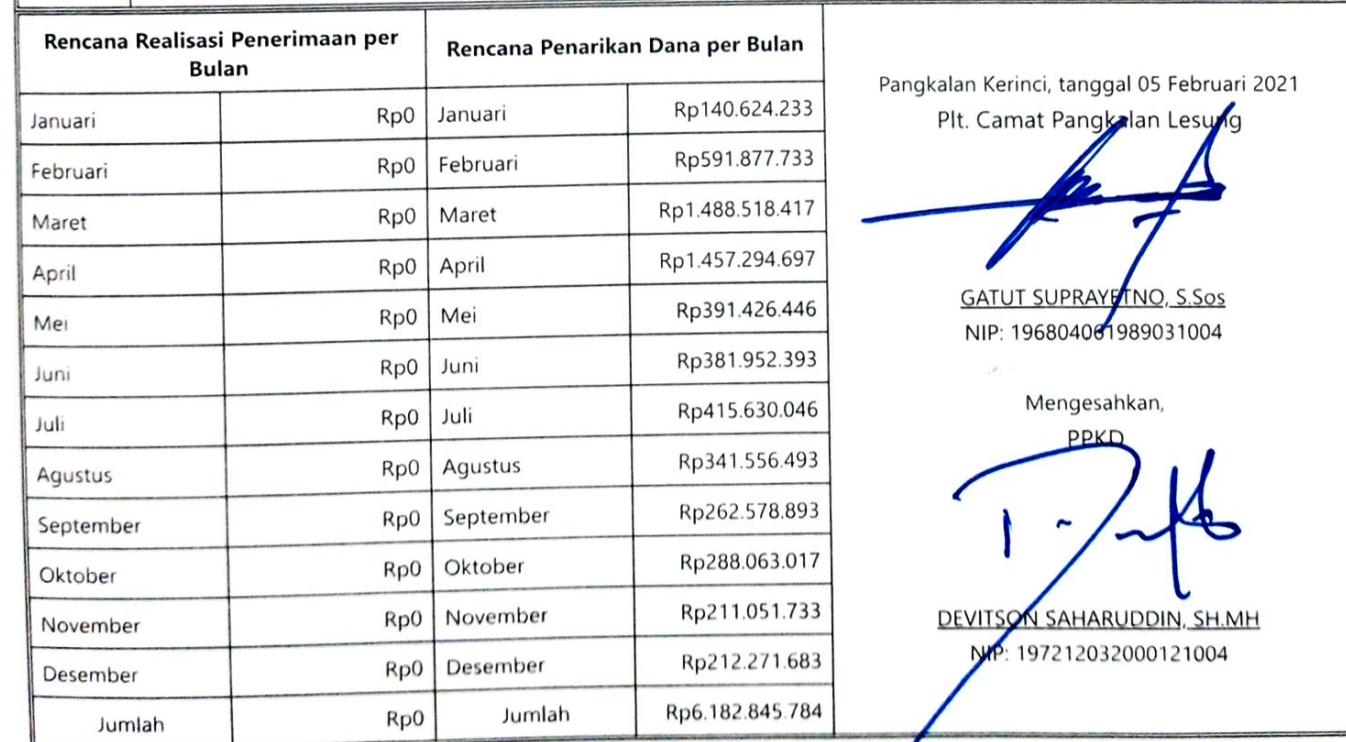 Rencana Realisasi Penerimaan per Bulan
Rencana Penarikan Dana per Bulan
Januari Rp0 Januari Rp140.624.233
Februari Rp0 Februari Rp591.877.733
Maret Rp0 Maret Rp1.488.518.417
April Rp0 April Rp1.457.294.697
Mei Rp0 Mei Rp391.426.446
Juni Rp0 Juni Rp381.952.393
Juli Rp0 Juli Rp415.630.046
Agustus Rp0 Agustus Rp341.556.493
September Rp0 September Rp262.578.893
Oktober Rp0 Oktober Rp288.063.017
November Rp0 November Rp211.051.733
Desember Rp0 Desember Rp212.271.683
Jumlah Rp0 Jumlah Rp6.182.845.784
Pangkalan Kerinci, tanggal 05 Februari 2021
Plt. Camat Pangkalan Lesung
GATUT SUPRAYETNO, S.Sos
NIP: 196804061989031004
Mengesahkan,
PPKD
DEVITSON SAHARUDDIN, SH.MH
NIP: 197212032000121004